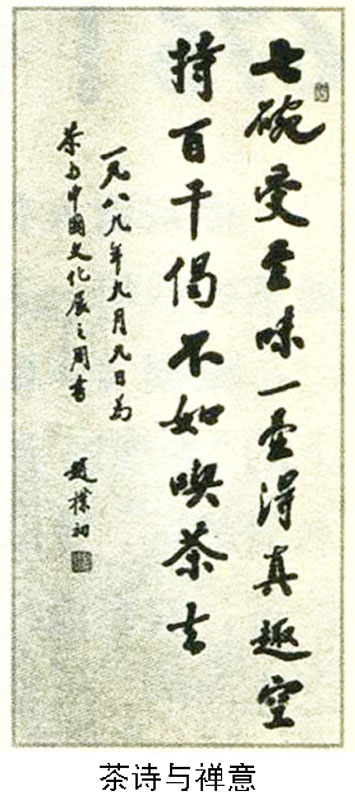 七碗受至味一壺得真趣空
持百千偈不如喫茶去
一九八九年九月九日為
茶與中國文化展之周書
趙樸初
茶诗与禅意